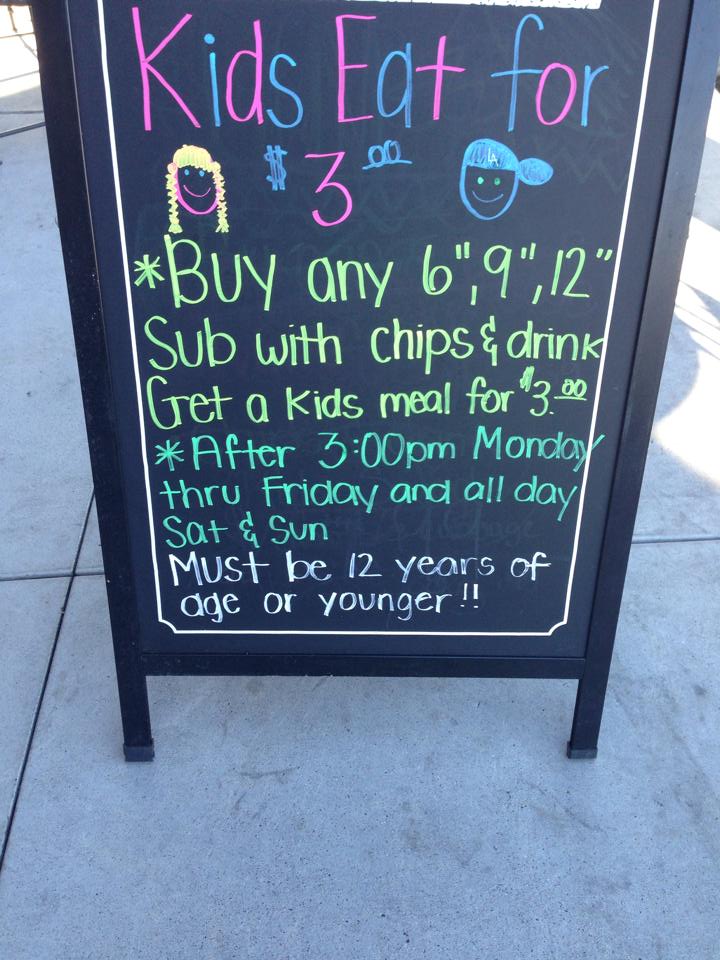 Kids Eat for
$3.00
*Buy any 6", 9", 12"
Sub with chips & drink
Get a kids meal for $3.00
*After 3:00pm Monday
thru Friday and all day
Sat & Sun
Must be 12 years of
age or younger!!